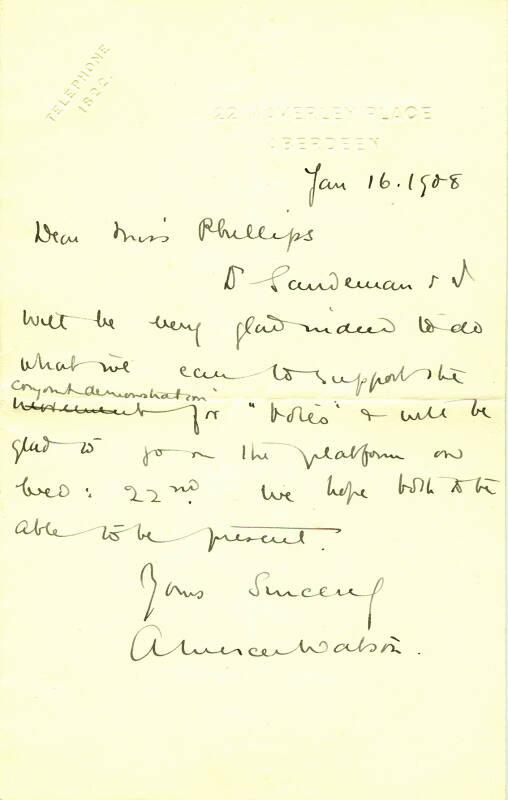 TELEPHONE
1822.
22 WAVERLEY PLACE
ABERDEEN
Jan 16. 1908
Dear Miss Phillips
Dr Sandeman & I
will be very glad indeed to do
what we can to support the
conjoint demonstration
movement for "votes" & will be
glad to go on the platform on
Wed: 22nd. We hope both to be
able to be present.
Yours Sincerely
A Mercer Watson.